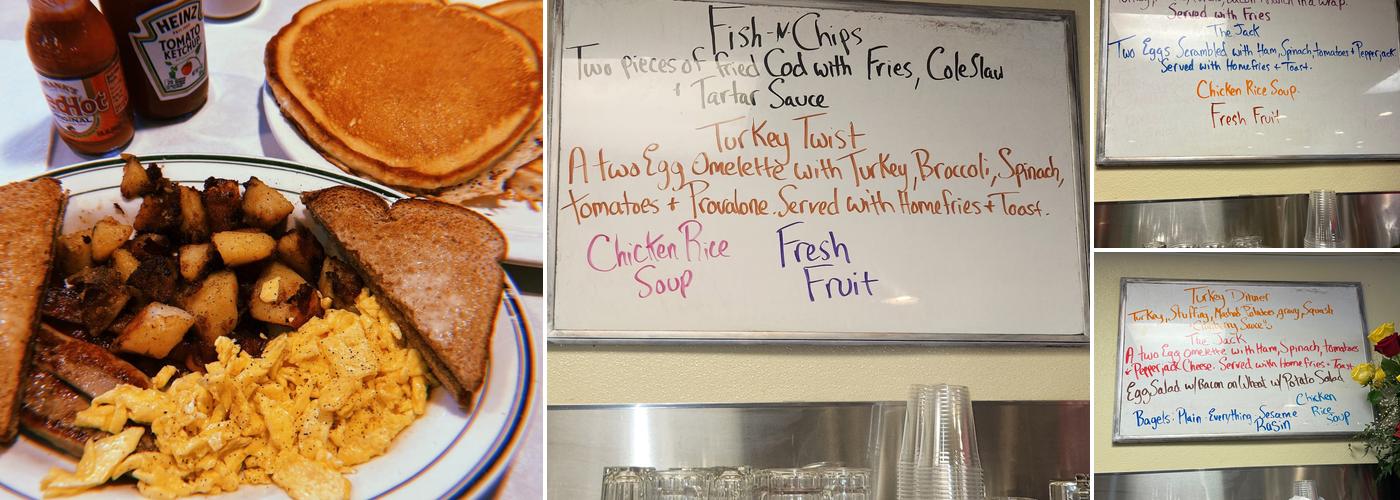 FRANK'S
RedHot
ORIGINAL
HEINZ
TOMATO
KETCHUP
Fish-N-Chips
Two pieces of fried Cod with Fries, ColeSlaw
+ Tartar Sauce
Turkey Twist
A two Egg Omelette with Turkey, Broccoli, Spinach,
tomatoes + Provalone. Served with Homefries + Toast.
Chicken Rice
Soup
Fresh
Fruit
in a wrap.
Served with Fries
The Jack
Two Eggs Scrambled with Ham, Spinach, tomatoes + Pepperjack
Served with Homefries + Toast.
Chicken Rice Soup.
Fresh Fruit
Turkey Dinner
Turkey, Stuffing, Mashed Potatoes, gravy, Squash
Cranberry Sauce
The Jack
A two Egg Omelette with Ham, Spinach, tomatoes
+ Pepperjack Cheese. Served with Homefries + Toast
Egg Salad w/Bacon on Wheat w/ Potato Salad
Chicken
Rice
Soup
Bagels: Plain Everything, Sesame
Rasin